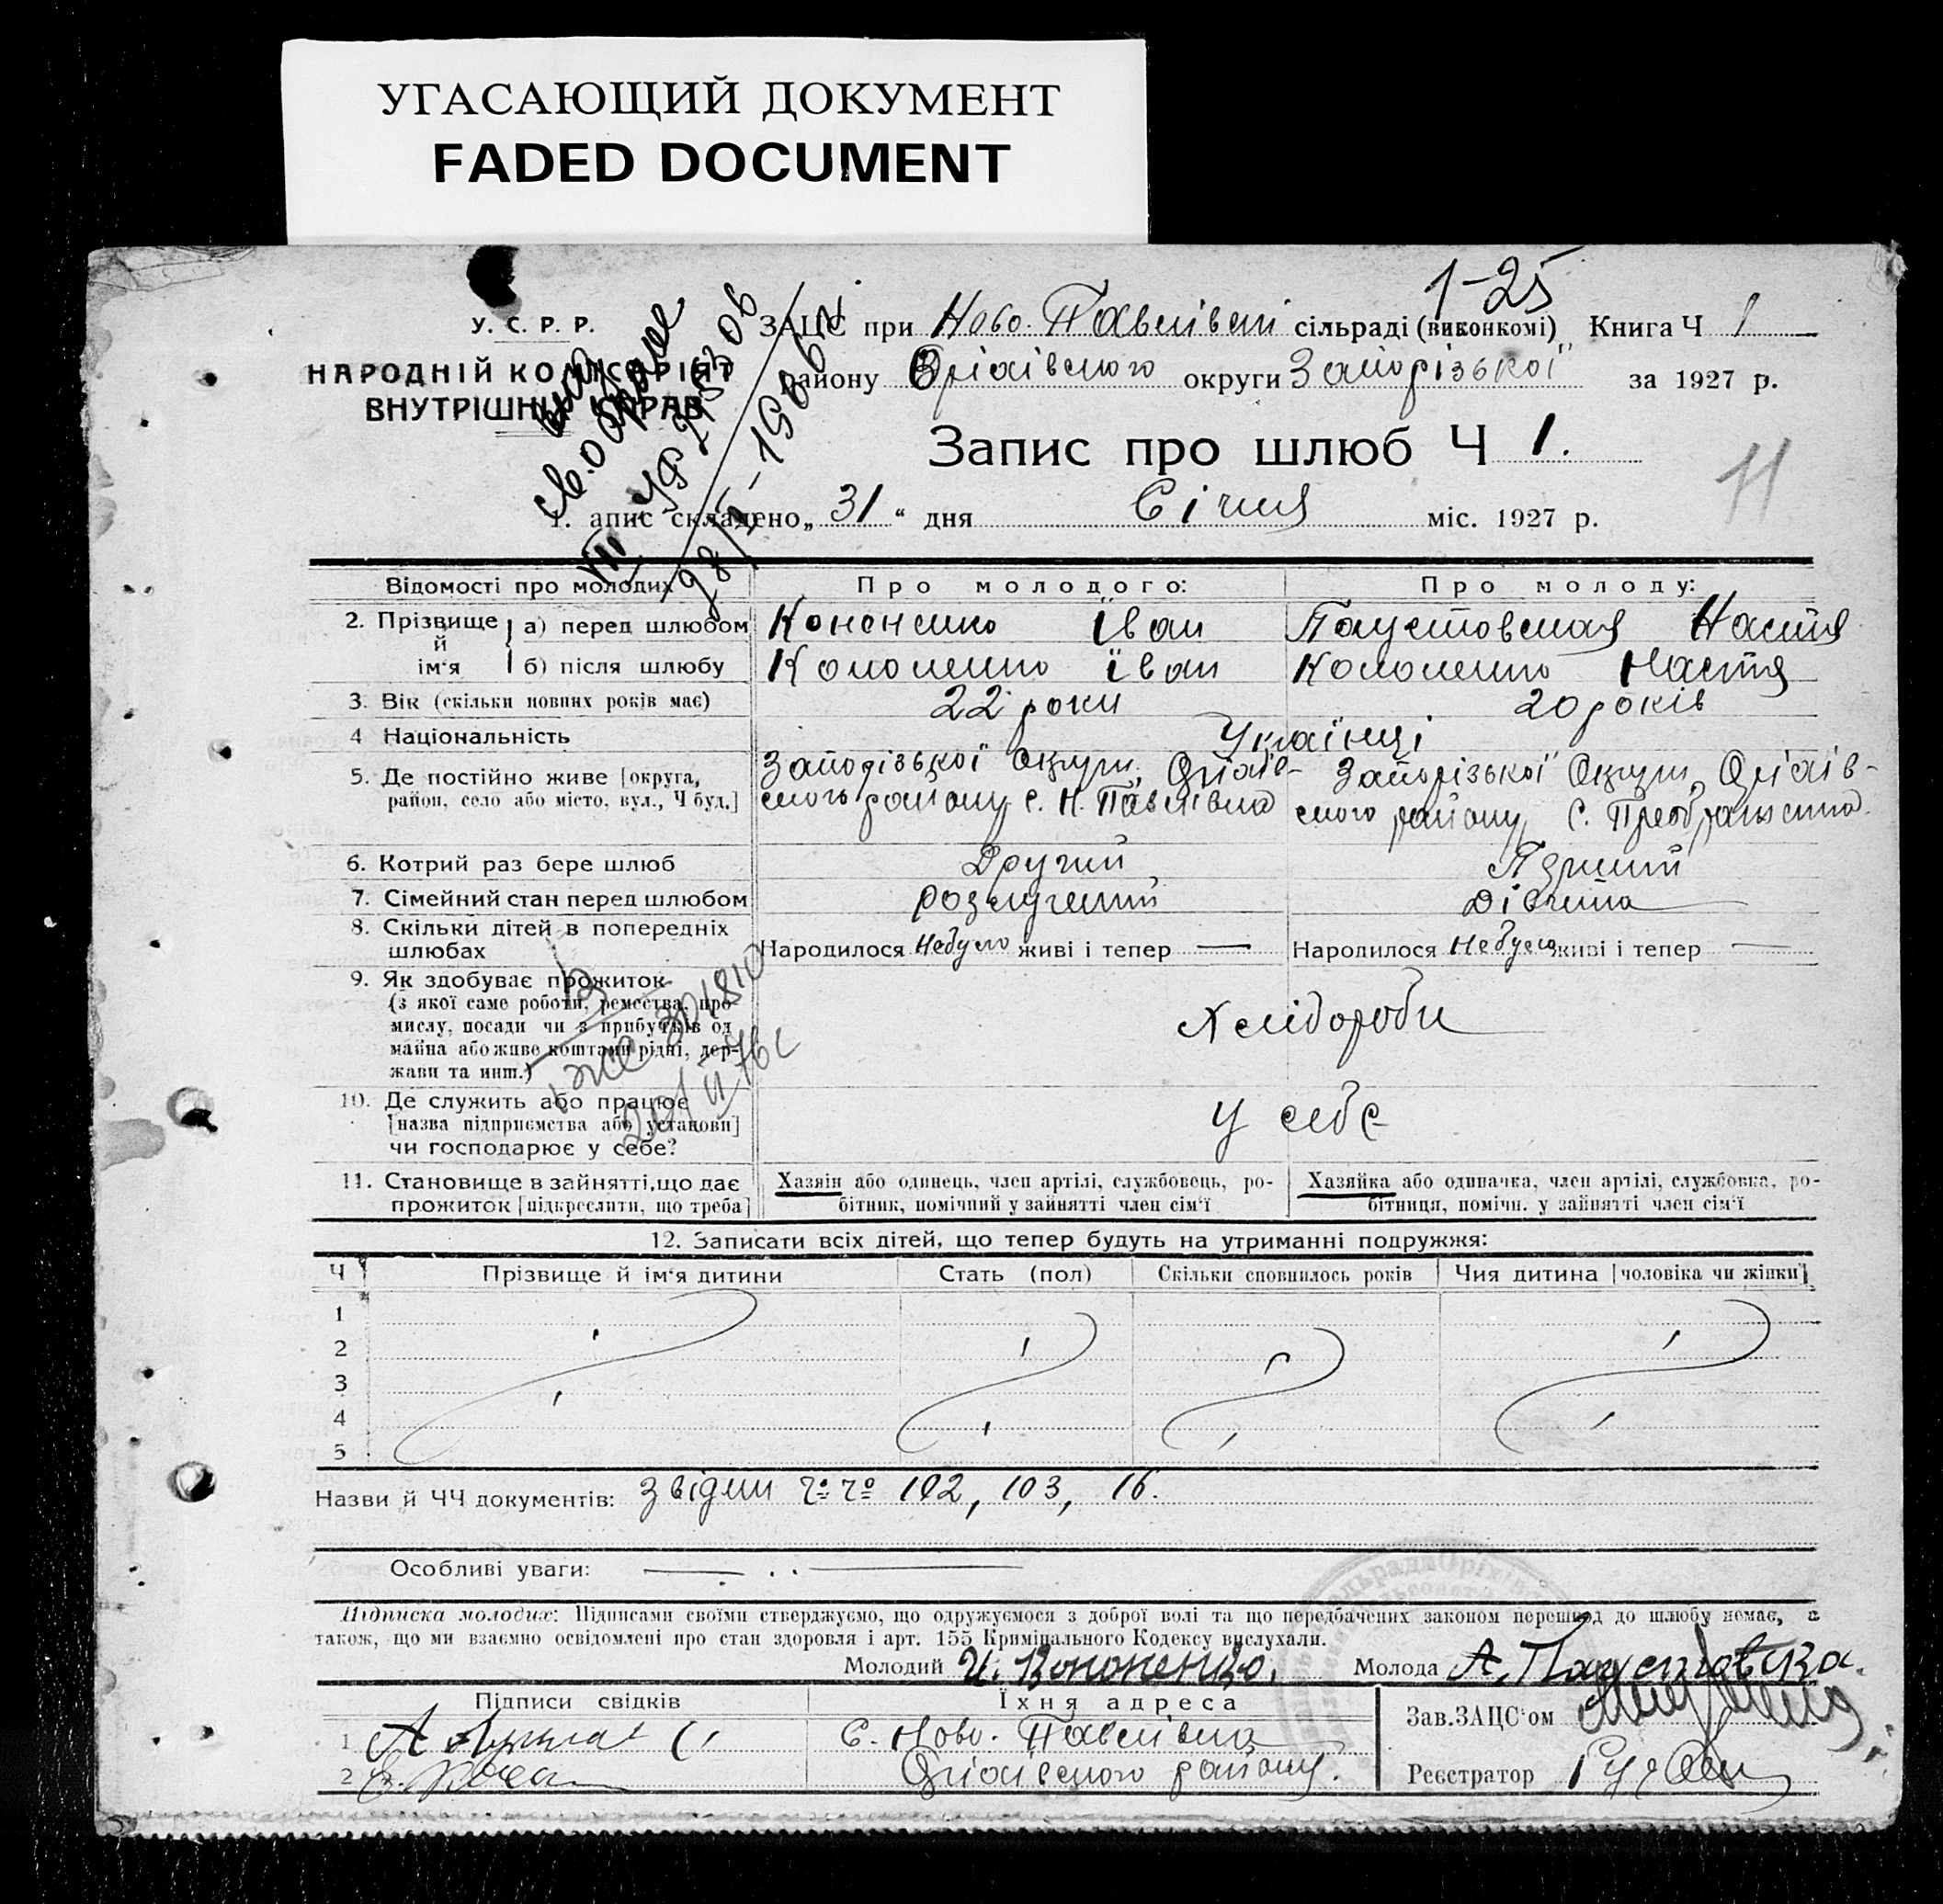 УГАСАЮЩИЙ ДОКУМЕНТ
FADED DOCUMENT
1-25
У. С. Р. Р.
НАРОДНІЙ КОМІСАРІЯТ
ВНУТРІШНІХ СПРАВ
ЗАЦС при Ново-Павлівській сільраді (виконкомі) Книга Ч 1
району Оріхівского округи Запорізької за 1927 р.
Запис про шлюб Ч 1.
11
1. апис складено „31“ дня Січня міс. 1927 р.
Відомості про молодих
Про молодого:
Про молоду:
2. Прізвище й ім‘я
а) перед шлюбом Кононенко Іван Паустовская Настя
б) після шлюбу Кононенко Іван Кононенко Настя
3. Вік (скільки повних років має) 22 роки 20 років
4 Національність Українці
5. Де постійно живе [округа,
район, село або місто, вул., Ч буд.]
Запорізької Округи, Оріхів-
ского району с. Н. Павлівка
Запорізької Округи, Оріхів-
ского району, С. Преображенка
6. Котрий раз бере шлюб Другий Перший
7. Сімейний стан перед шлюбом розлучений Дівчина
8. Скільки дітей в попередніх
шлюбах
Народилося Небуло живі і тепер — Народилося Небуло живі і тепер —
9. Як здобуває прожиток
(з якої саме роботи, ремества, про-
мислу, посади чи з прибутків од
майна або живе коштами рідні, дер-
жави та инш.)
Хлібороби
10. Де служить або працює
[назва підприємства або установи]
чи господарює у себе?
У себе
11. Становище в зайнятті, що дає
прожиток [підкреслити, що треба]
Хазяїн або одинець, член артілі, службовець, ро-
бітник, помічний у зайнятті член сім‘ї
Хазяйка або одиначка, член артілі, службовка, ро-
бітниця, помічн. у зайнятті член сім‘ї
12. Записати всіх дітей, що тепер будуть на утриманні подружжя:
Ч Прізвище й ім‘я дитини Стать (пол) Скільки сповнилось років Чия дитина [чоловіка чи жінки]
1
2
3
4
5
Назви й ЧЧ документів: звідки 102, 103, 16.
Особливі уваги:
Підписка молодих: Підписами своїми стверджуємо, що одружуємося з доброї волі та що передбачених законом перешкод до шлюбу немає, а
також, що ми взаємно освідомлені про стан здоровля і арт. 155 Кримінального Кодексу вислухали.
Молодий И. Кононенко. Молода А. Паустовска.
Підписи свідків Їхня адреса
Зав. ЗАЦС‘ом
1 С. Ново-Павлівка
2 Оріхівского району.
Реєстратор